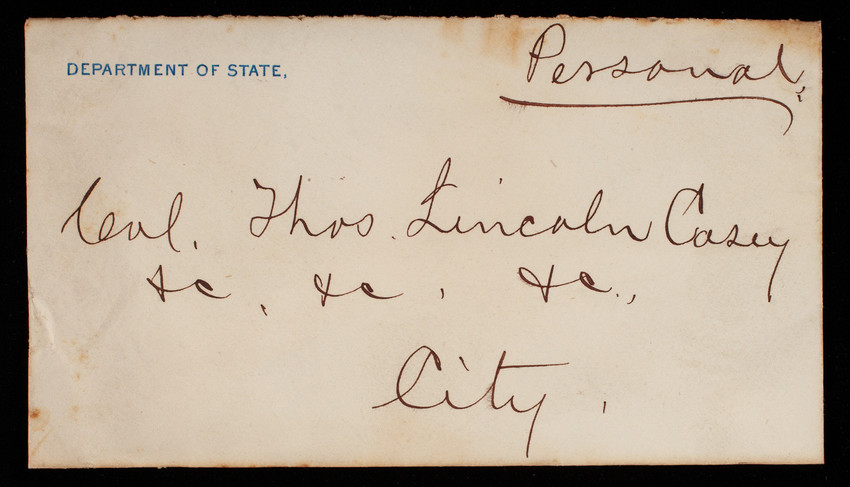 DEPARTMENT OF STATE,
Personal,
Col. Thos. Lincoln Casey
&c, &c, &c.,
City.